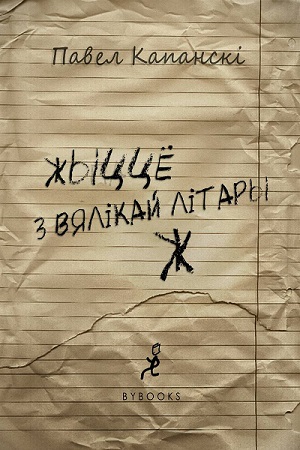 Павел Капанскі
ЖЫЦЦЁ
З ВЯЛІКАЙ ЛІТАРЫ
Ж
BYBOOKS